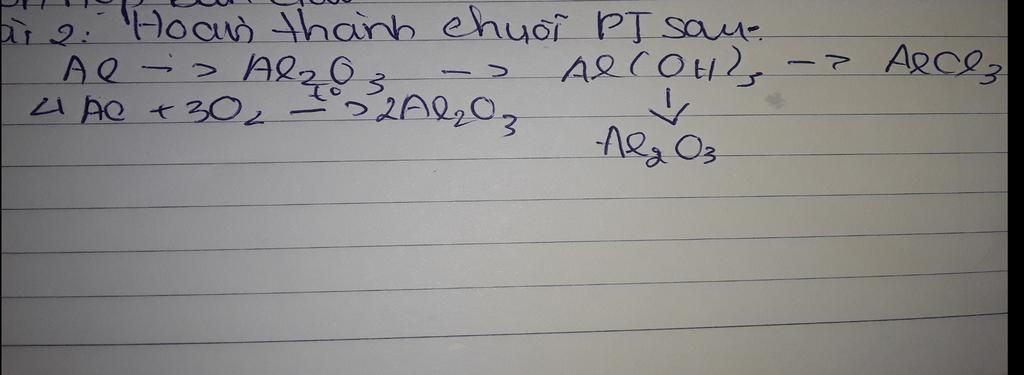 ài 2: Hoàn thành chuỗi PT sau:
Al -> Al2O3 -> Al(OH)3 -> AlCl3
4Al + 3O2 t° -> 2Al2O3
↓
Al2O3